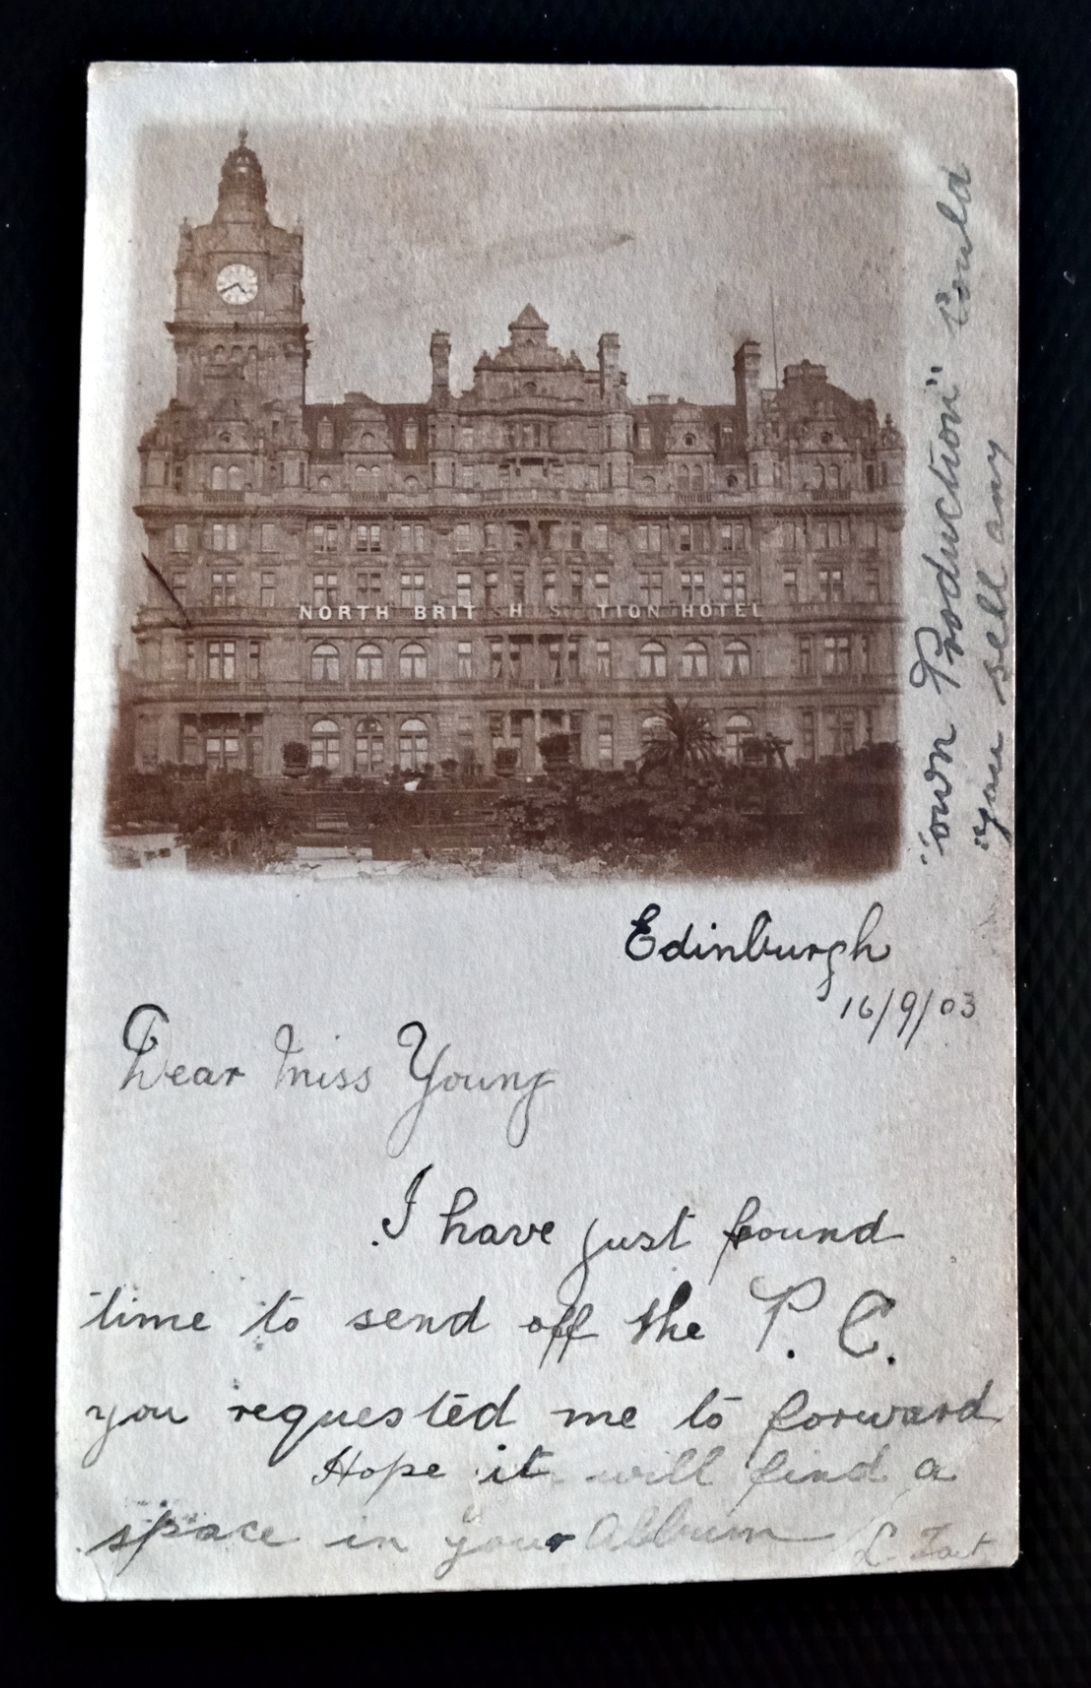 NORTH BRIT SH S TION HOTEL
"own Production" Could
"you sell any
Edinburgh
16/9/03
Dear Miss Young
I have just found
time to send off the P. C.
you requested me to forward
Hope it will find a
space in your Album
L